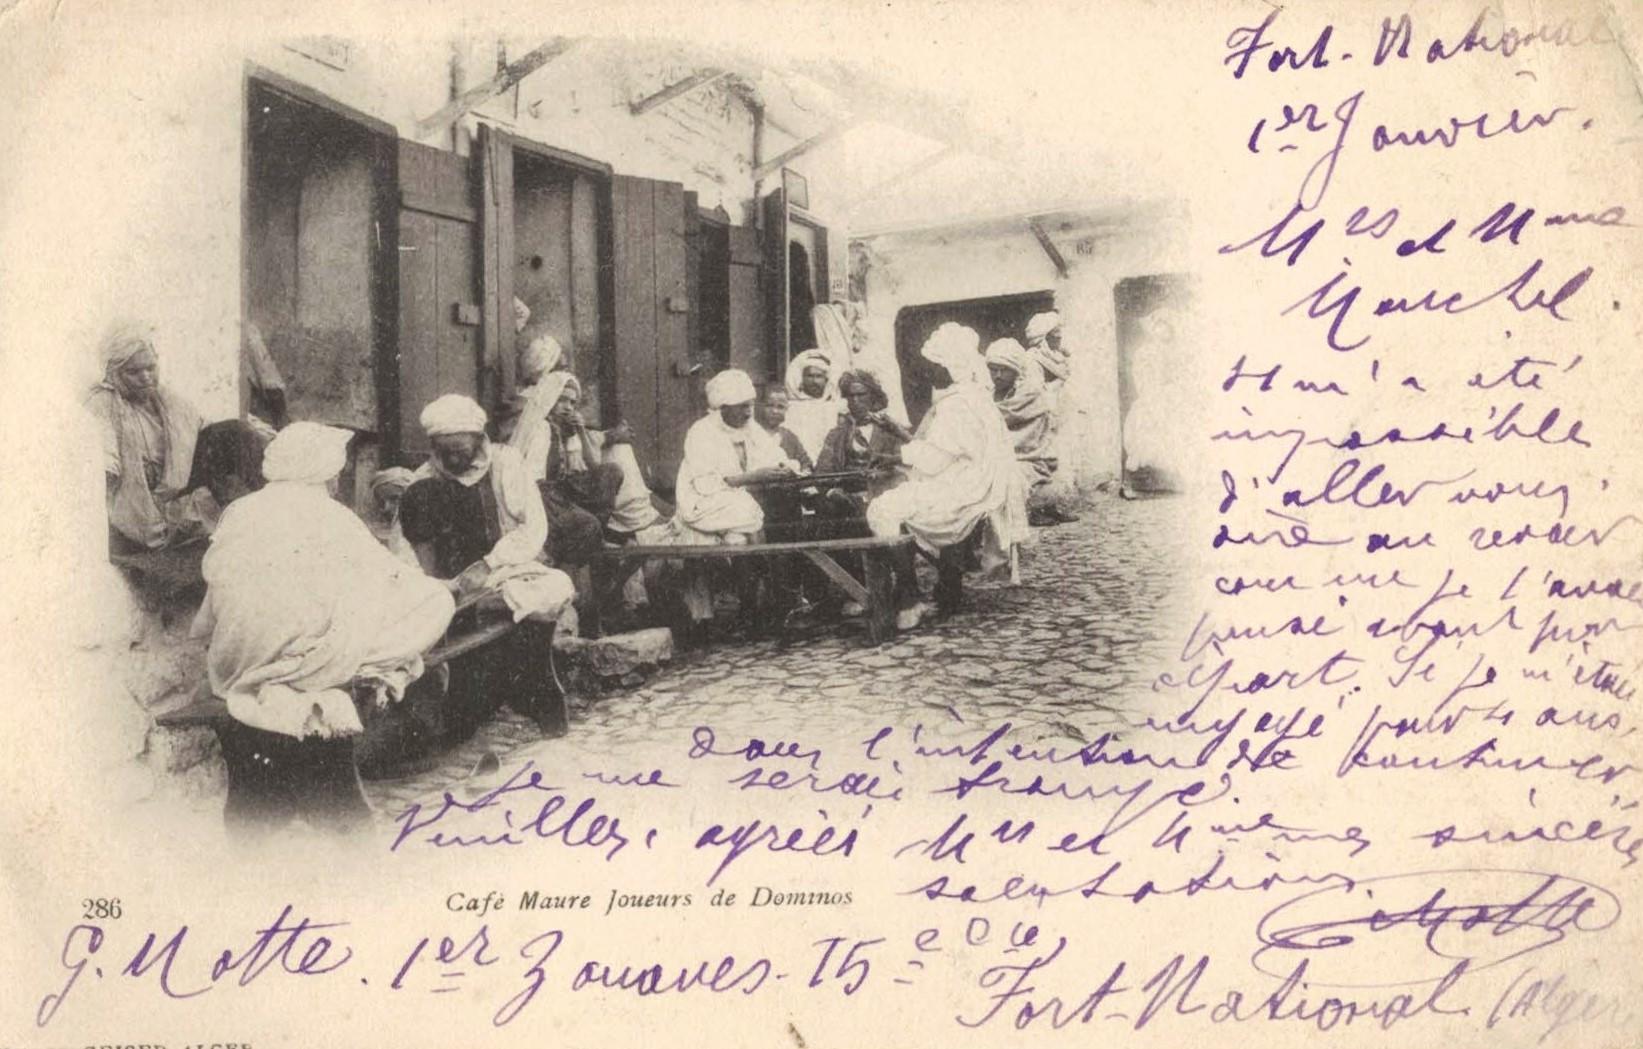 Fort-National
1er Janvier.
Mrs et Mme
Marchel.
Il m'a été
impossible
d'aller vous
dire au revoir
comme je l'avais
pensé avant mon
départ. Si je m'étais
engagé pour 4 ans,
dans l'intention de continuer,
je me serais trompé.
Veuillez, agréer Mrs et Mme mes sincères
salutations.
GMotte
286
Café Maure Joueurs de Dominos
G. Motte. 1er Zouaves - 15e Cie
Fort-National (Alger
GEISER ALGER